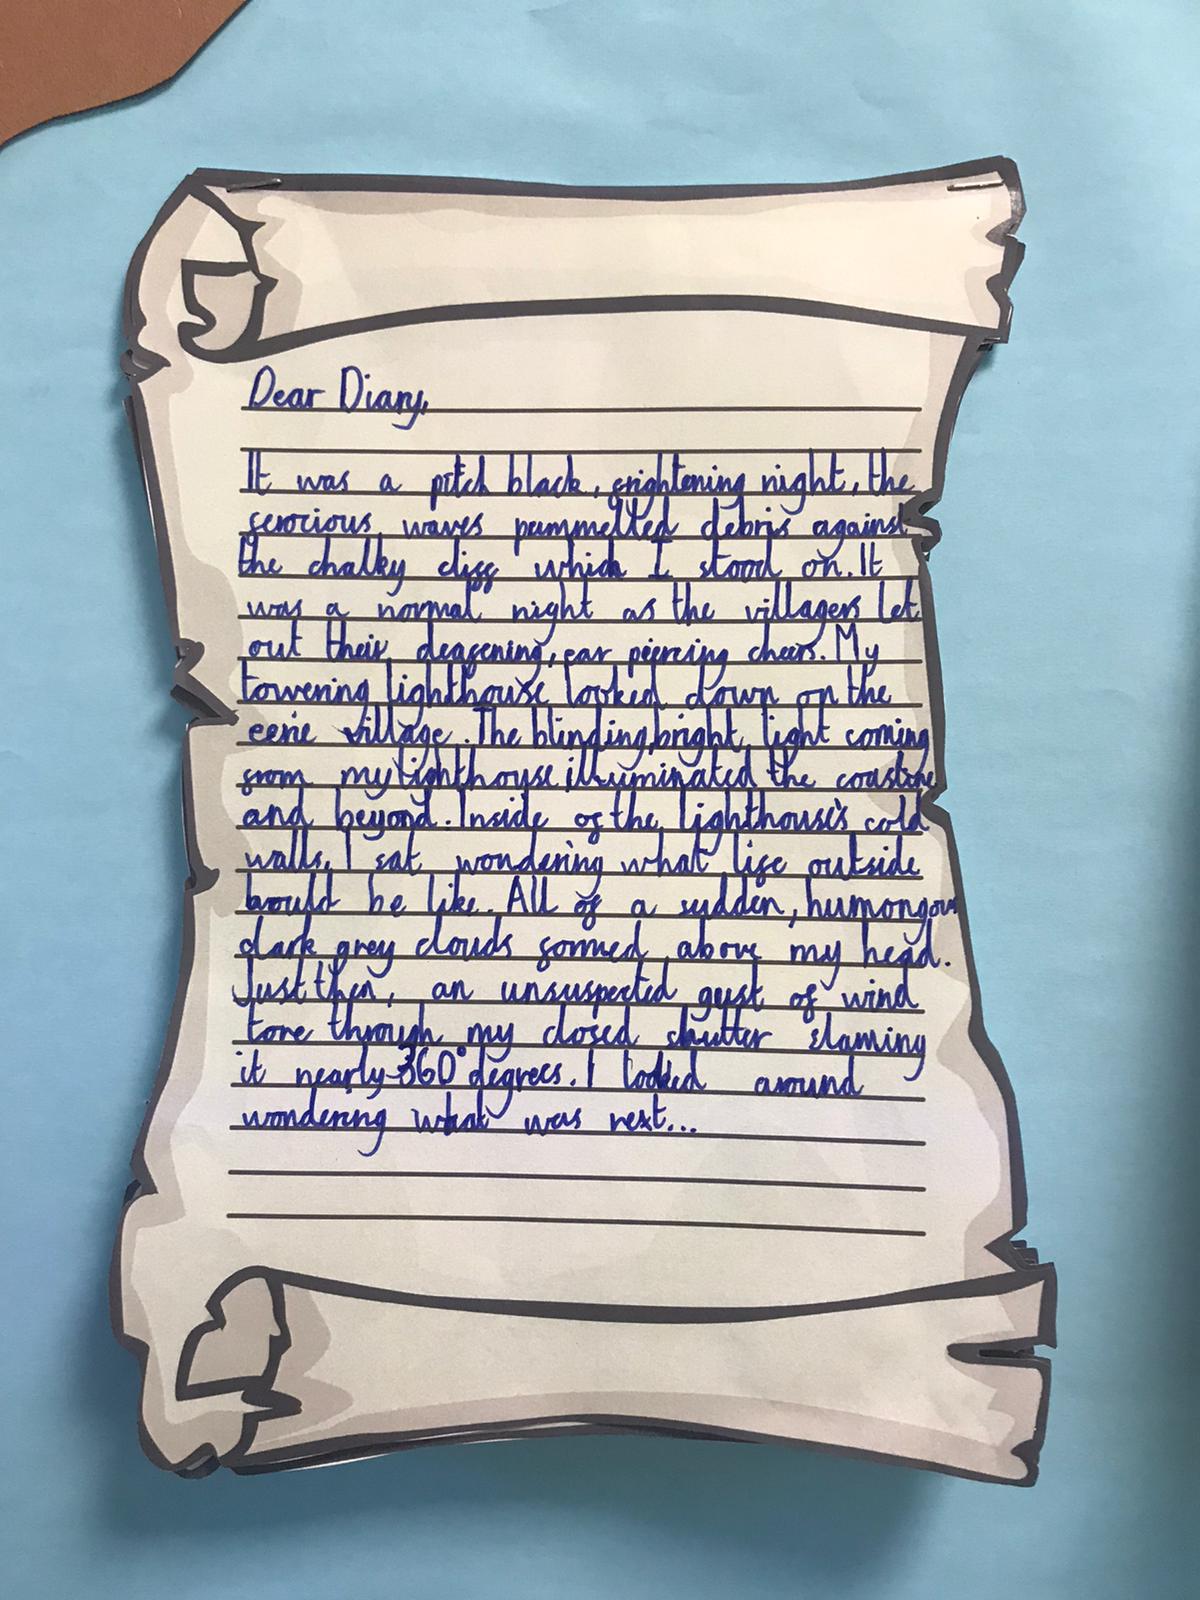 Dear Diary,
It was a pitch black, frightening night, the
ferocious waves pummelled debris against
the chalky cliff which I stood on. It
was a normal night as the villagers let
out their deafening, ear piercing cheers. My
towering lighthouse looked down on the
eerie village. The blinding, bright light coming
from my lighthouse illuminated the coastline
and beyond. Inside of the lighthouse's cold
walls, I sat wondering what life outside
would be like. All of a sudden, humongous
dark grey clouds formed above my head.
Just then, an unsuspected gust of wind
tore through my closed shutter slaming
it nearly 360° degrees. I looked around
wondering what was next...